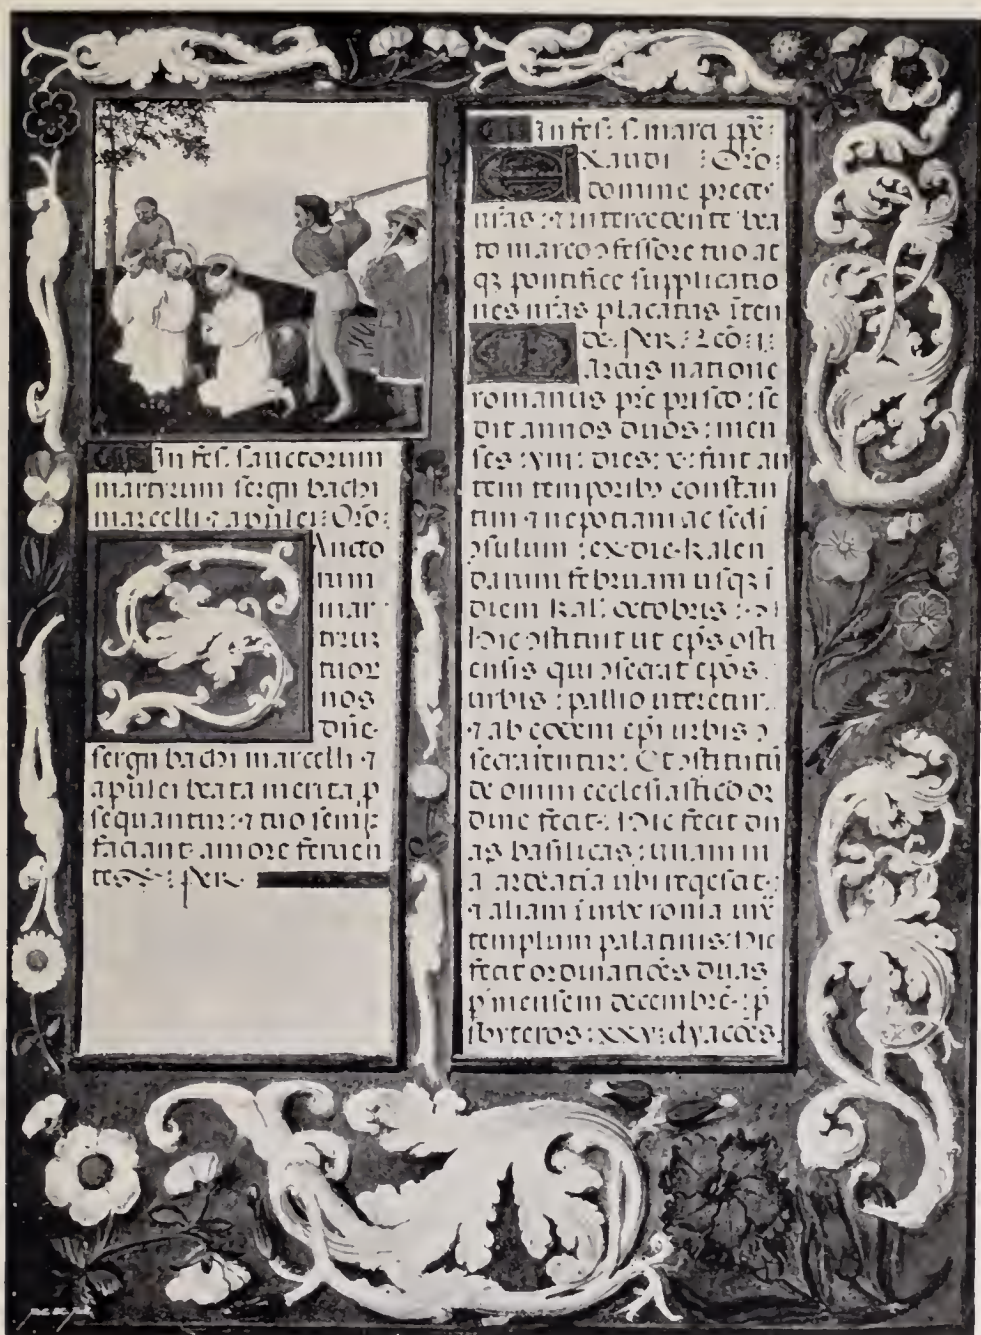 In fes. sanctorum
martyrum sergii bachi
marcelli ⁊ apulei: Oro:
Ancto
rum
mar
tirũ
tuor
nos
dñe
sergii bachi marcelli ⁊
apulei beata merita p
sequantur: ⁊ tuo semp
faciant amore feruen
tes: per
In fes: s. marci ppe:
Xaudi : Oro:
domine preces
nr̃as: ⁊ intercedente bea
to marco ↄfessore tuo at
qꝫ pontifice supplicatio
nes nr̃as placatus iten
de. per: Leo: j:
Arcus natione
romanus pr̃e prisco: se
dit annos duos: men
ses: viii: dies: x: fuit au
tem temporibꝰ constan
tini ⁊ nepotiani ac secũdi
ↄsulum: ex die kalen
darum februarii usqꝫ ĩ
diem kal' octobris:
Hic ↄstituit ut ep̃s osti
ensis qui ↄsecrat ep̃os
urbis: pallio uteretur.
⁊ ab eodem ep̃i urbis ↄ
secrarentur: Et ↄstitutũ
de omni ecclesiastico or
dine fecit: Hic fecit du
as basilicas: unam in
a ardeatia ubi reqescit:
⁊ aliam ĩ urbe roma
templum palatinis: Hic
fecit ordinatiões duas
p mensem decembrẽ: p̃
sbyteros: xxv: dyacões